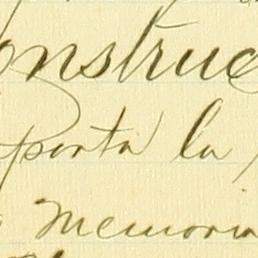 onstruc
porta la
Memoria